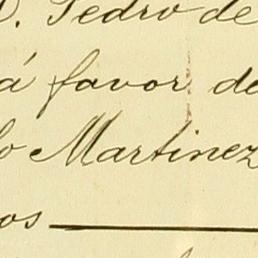 D. Pedro de
á favor de
lo Martinez
os